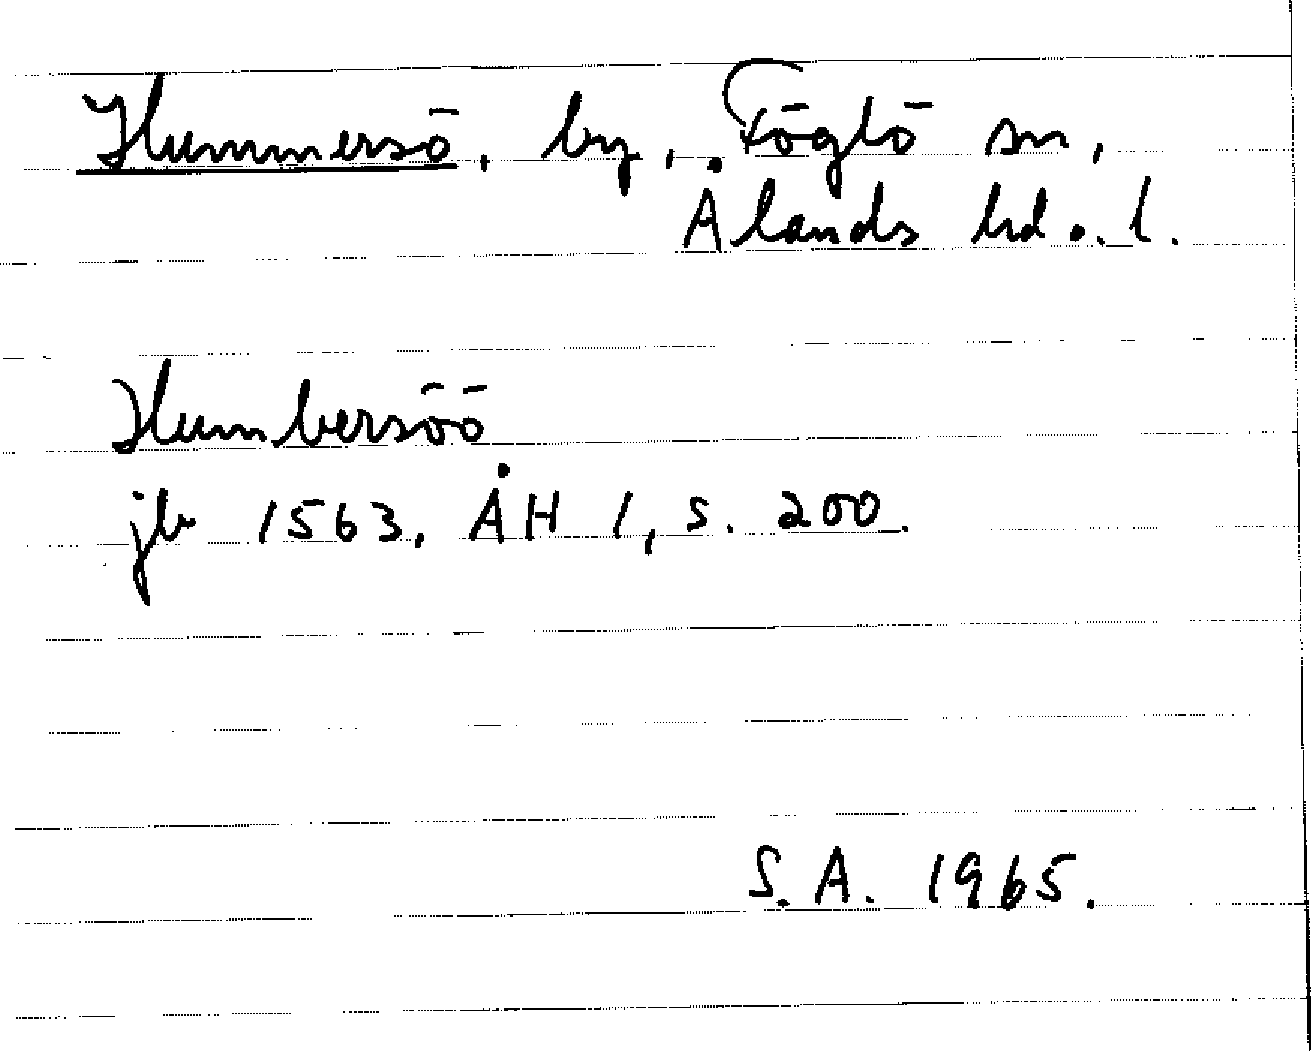 Hummersö, by, Föglö sn,
Ålands hd o. l.
Humbersöö
jb 1563, ÅH 1, s. 200.
S.A. 1965.